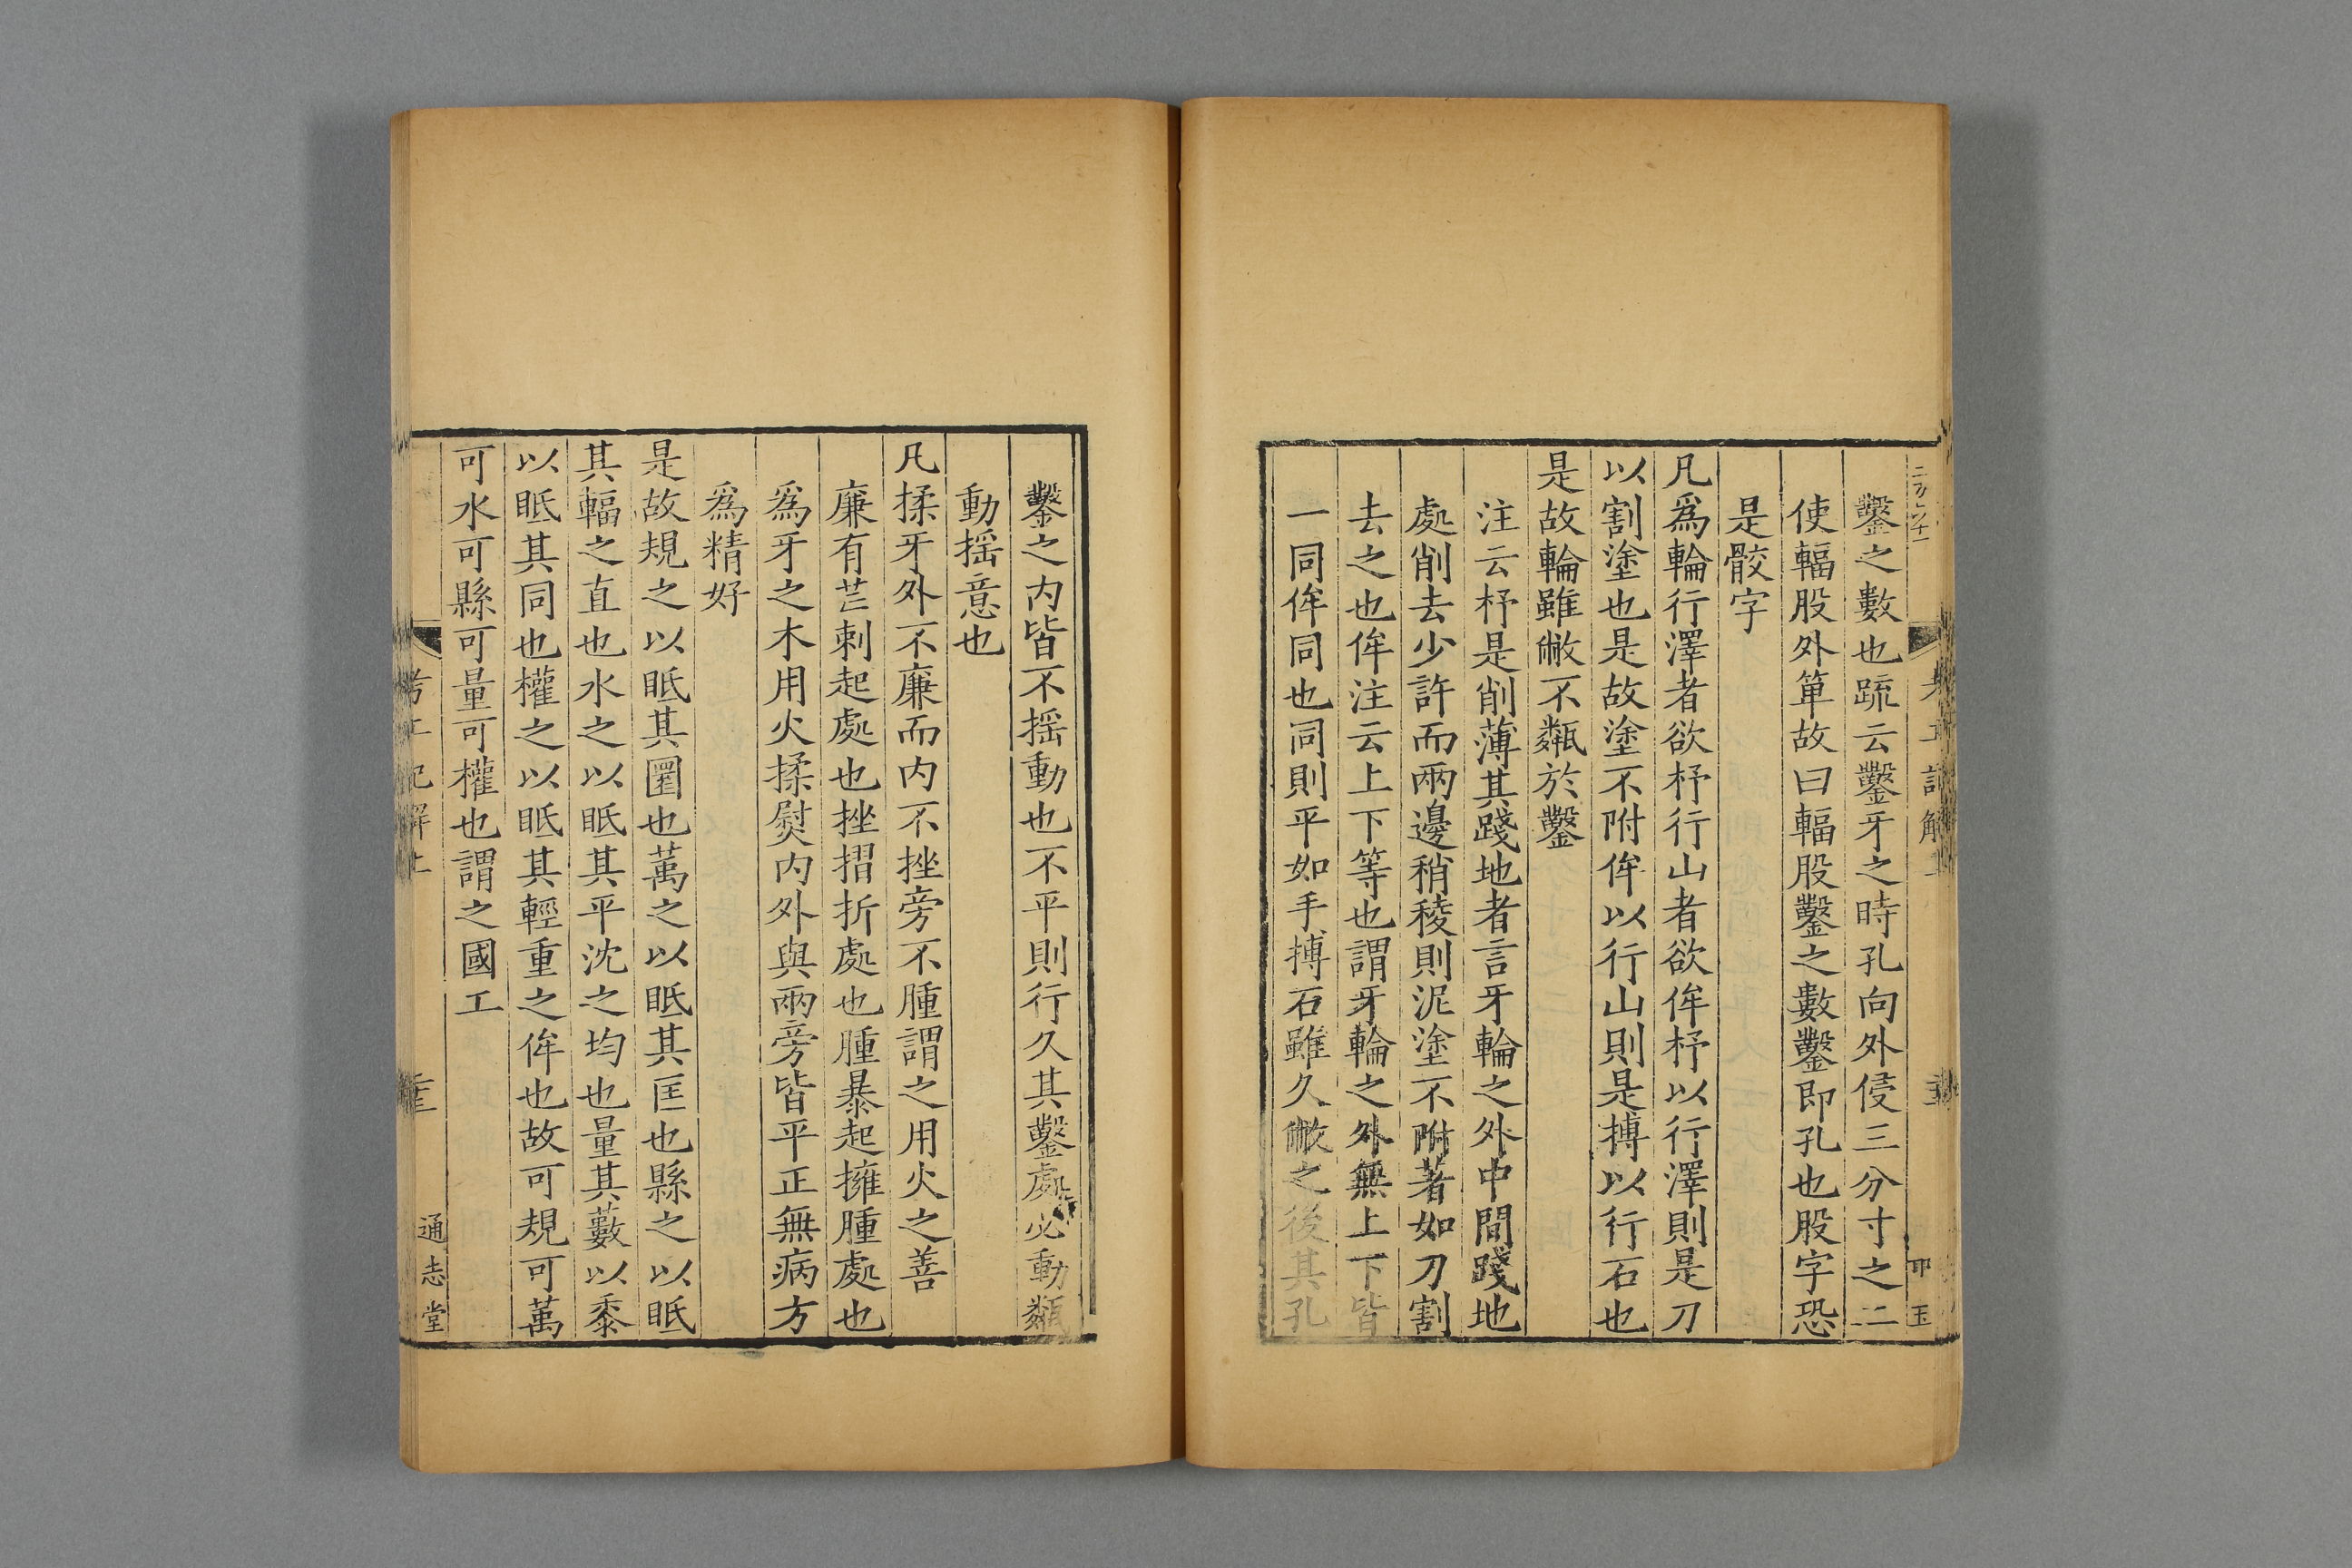 鑿之數也疏云鑿牙之時孔向外侵三分寸之二
使輻股外箄故曰輻股鑿之數鑿即孔也股字恐
是骹字
凡爲輪行澤者欲杼行山者欲侔杼以行澤則是刀
以割塗也是故塗不附侔以行山則是摶以行石也
是故輪雖敝不甐於鑿
注云杼是削薄其踐地者言牙輪之外中間踐地
處削去少許而兩邊稍稜則泥塗不附著如刀割
去之也侔注云上下等也謂牙輪之外無上下皆
一同侔同也同則平如手搏石雖久敝之後其孔
鑿之内皆不揺動也不平則行久其鑿處必動甐
動揺意也
凡揉牙外不廉而内不挫旁不腫謂之用火之善
廉有芒刺起處也挫摺折處也腫暴起擁腫處也
爲牙之木用火揉熨内外與兩旁皆平正無病方
爲精好
是故規之以眂其圜也萬之以眂其匡也縣之以眂
其輻之直也水之以眂其平沈之均也量其藪以黍
以眂其同也權之以眂其輕重之侔也故可規可萬
可水可縣可量可權也謂之國工
考工記解上
通志堂